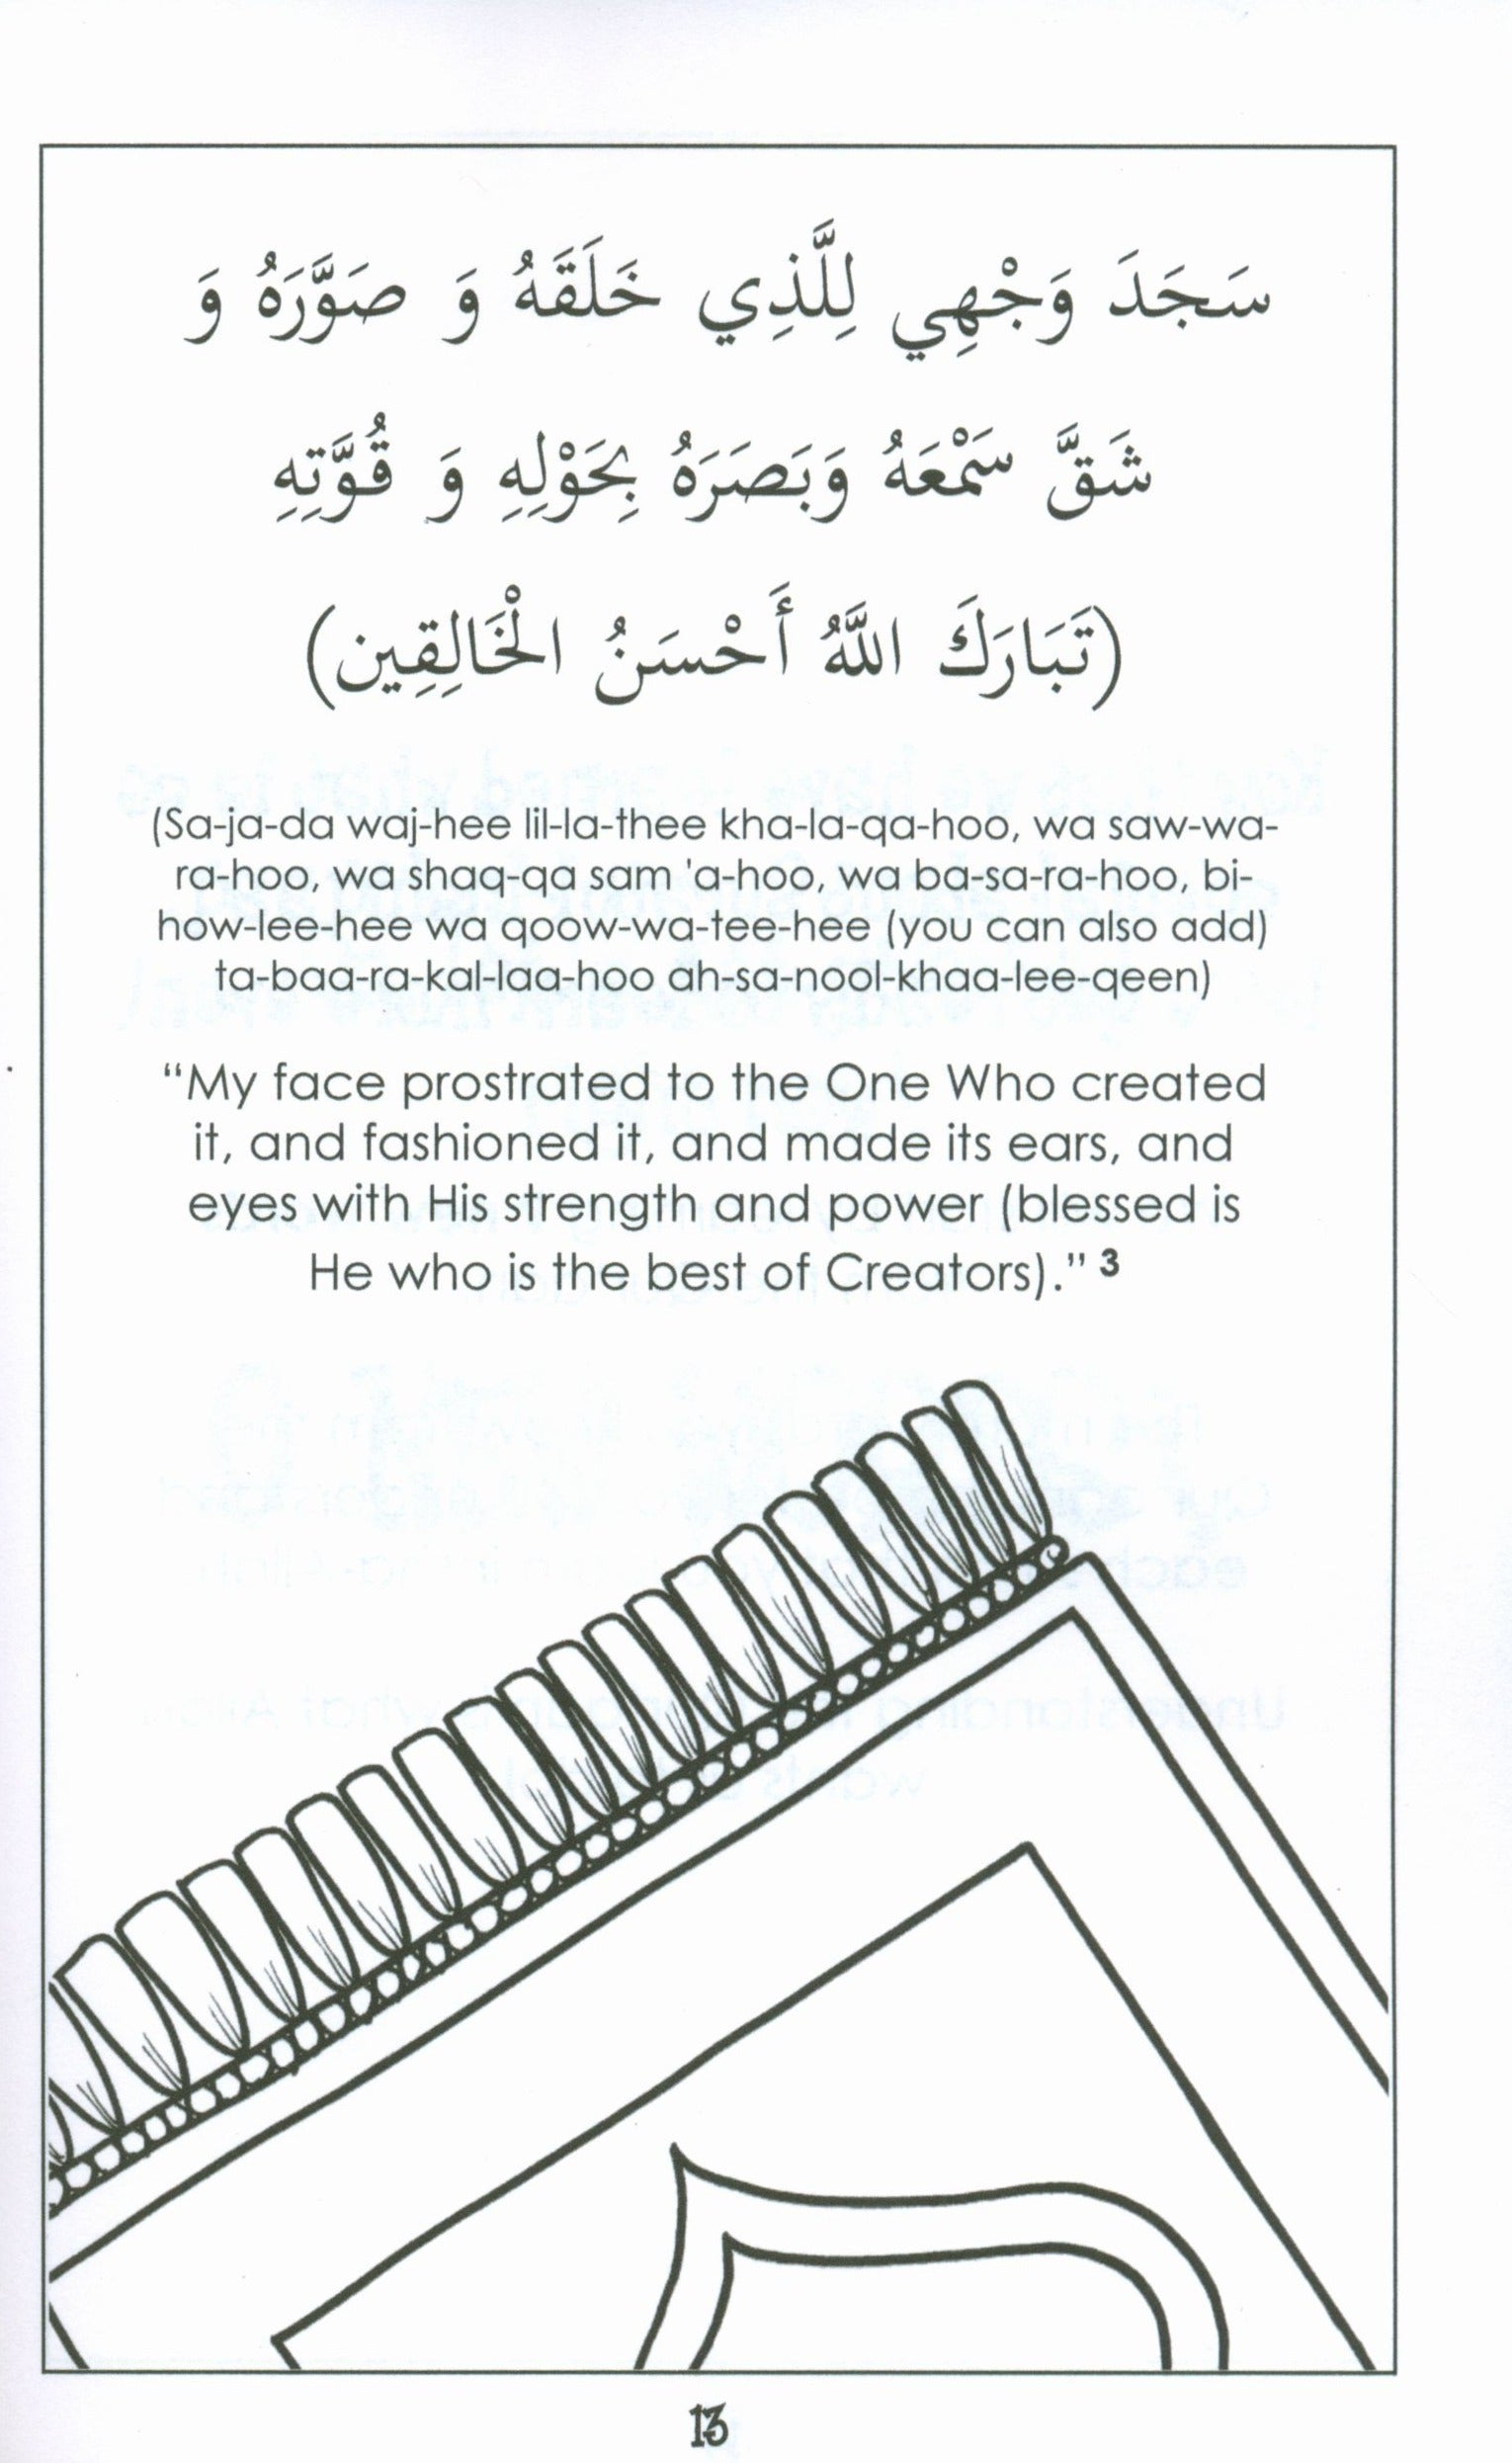 سَجَدَ وَجْهِي لِلَّذِي خَلَقَهُ وَ صَوَّرَهُ وَ
شَقَّ سَمْعَهُ وَبَصَرَهُ بِحَوْلِهِ وَ قُوَّتِهِ
(تَبَارَكَ اللَّهُ أَحْسَنُ الْخَالِقِين)
(Sa-ja-da waj-hee lil-la-thee kha-la-qa-hoo, wa saw-wa-
ra-hoo, wa shaq-qa sam 'a-hoo, wa ba-sa-ra-hoo, bi-
how-lee-hee wa qoow-wa-tee-hee (you can also add)
ta-baa-ra-kal-laa-hoo ah-sa-nool-khaa-lee-qeen)
“My face prostrated to the One Who created
it, and fashioned it, and made its ears, and
eyes with His strength and power (blessed is
He who is the best of Creators).” 3
13